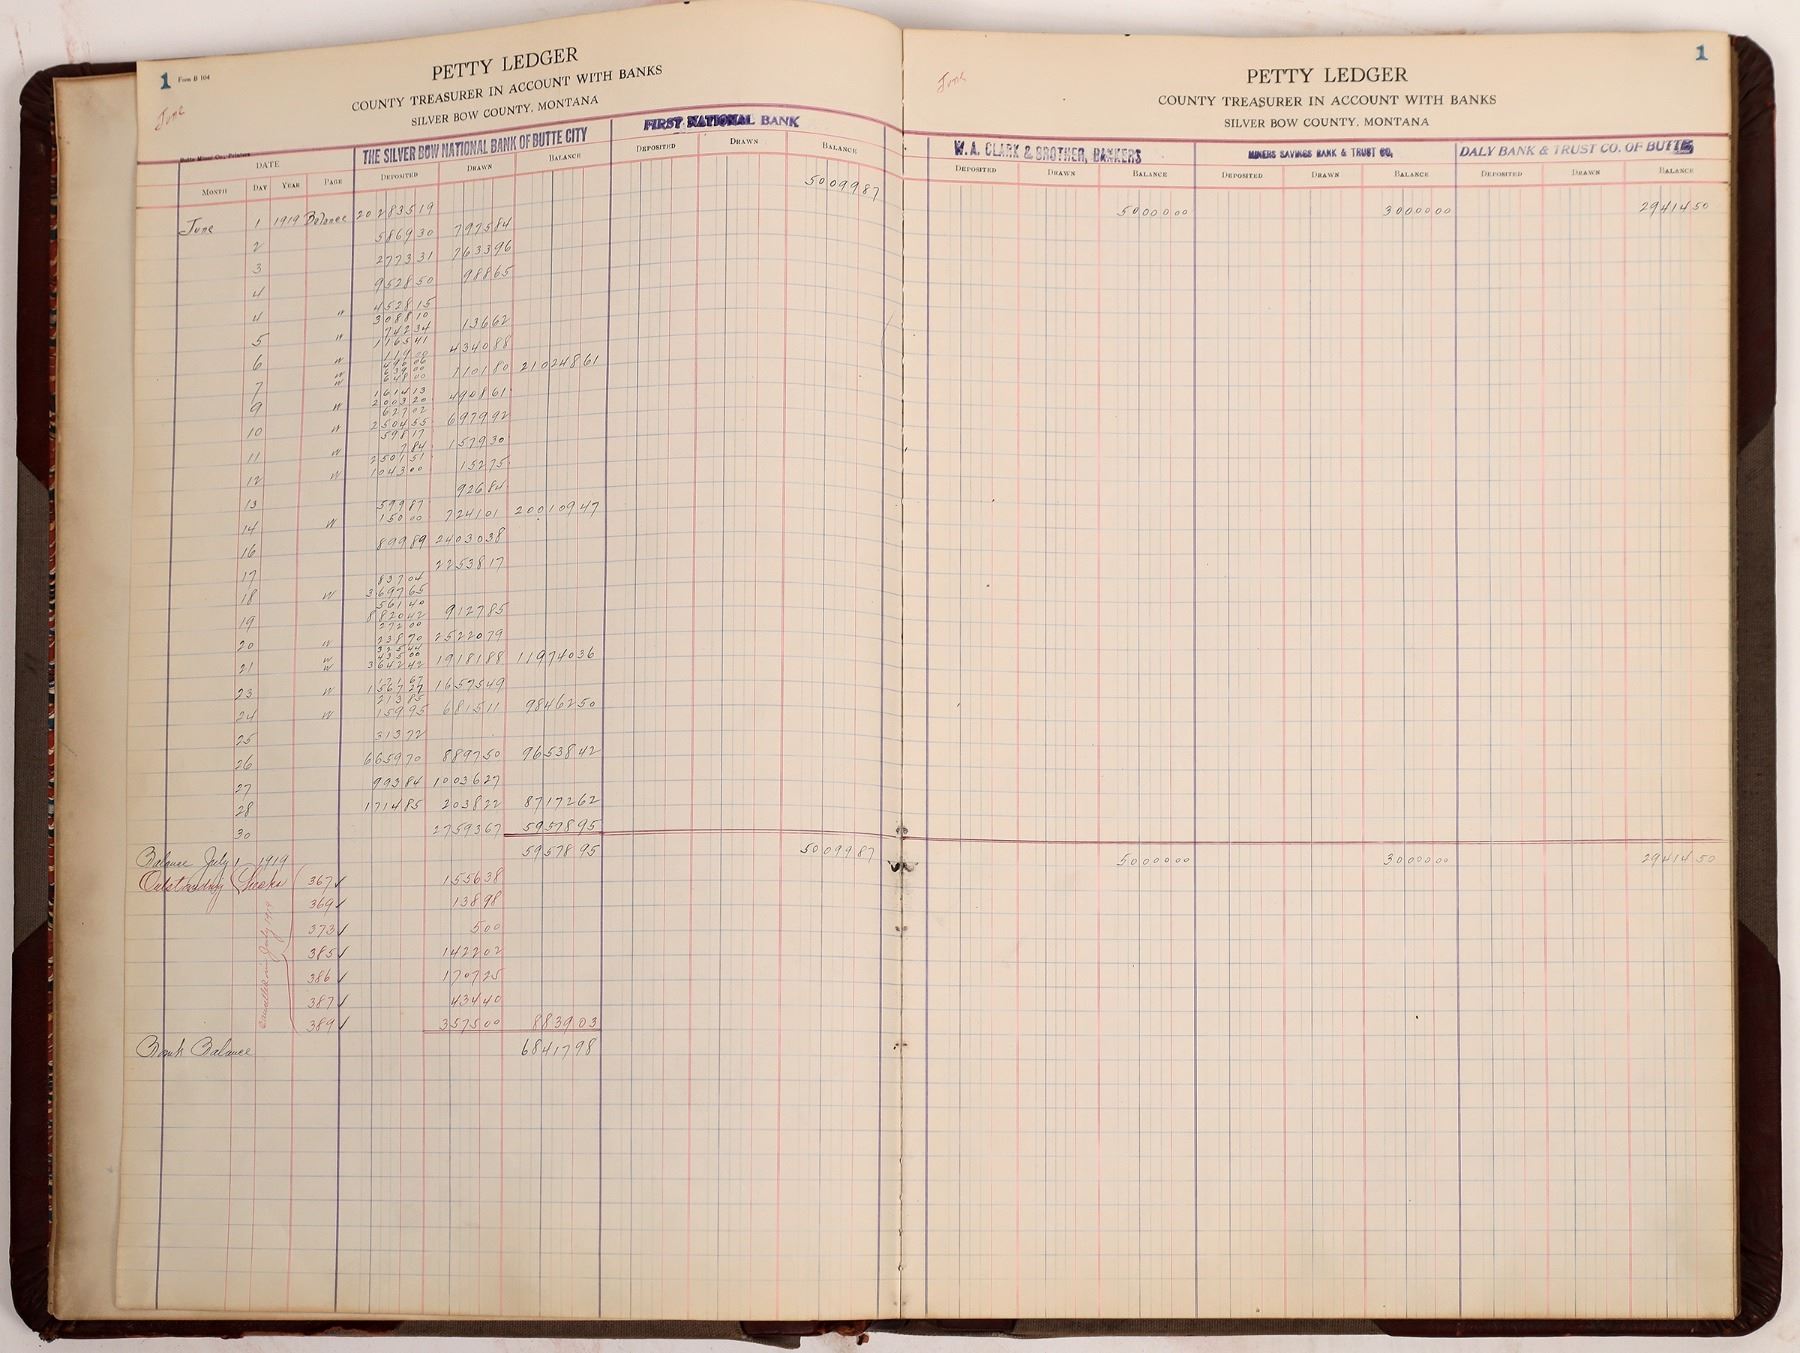 1 Form B 104
June
PETTY LEDGER
COUNTY TREASURER IN ACCOUNT WITH BANKS
SILVER BOW COUNTY, MONTANA
Butte Miner Co., Printers
THE SILVER BOW NATIONAL BANK OF BUTTE CITY FIRST NATIONAL BANK
DATE DEPOSITED DRAWN BALANCE DEPOSITED DRAWN BALANCE
MONTH DAY YEAR PAGE
5009987
June 1 1919 Balance 20283519
2 586930 797584
3 277331 763396
4 952850 98865
4 " 452815
308810
5 " 74234 13662
116541
6 " 11900 434088
49606
63900
7 " 64800 110180 21024861
161413
9 " 200320 490861
62702
10 " 250455 697992
59817
11 " 784 157930
250151
12 " 104300 15275
13 92684
59987
14 " 15000 724101 20010947
16 89989 2403038
17 2253817
83704
18 " 369765
56140
19 882042 912785
27200
20 " 23870 2522079
32544
43500
21 " 364242 1918188 11974036
17167
23 " 156727 1657549
21385
24 " 15995 681511 9846250
25 31372
26 665970 889750 9653842
27 99384 1003627
28 171485 203822 8717262
30 2759367 5957895
Balance July 1 1919 5957895 5009987
Outstanding Checks 367✓ 155638
369✓ 13898
373✓ 500
385✓ 142202
386✓ 170725
387✓ 43440
389✓ 357500 883903
Bank Balance 6841798
1
June
PETTY LEDGER
COUNTY TREASURER IN ACCOUNT WITH BANKS
SILVER BOW COUNTY, MONTANA
W. A. CLARK & BROTHER, BANKERS MINERS SAVINGS BANK & TRUST CO, DALY BANK & TRUST CO. OF BUTTE
DEPOSITED DRAWN BALANCE DEPOSITED DRAWN BALANCE DEPOSITED DRAWN BALANCE
5000000 3000000 2941450
5000000 3000000 2941450